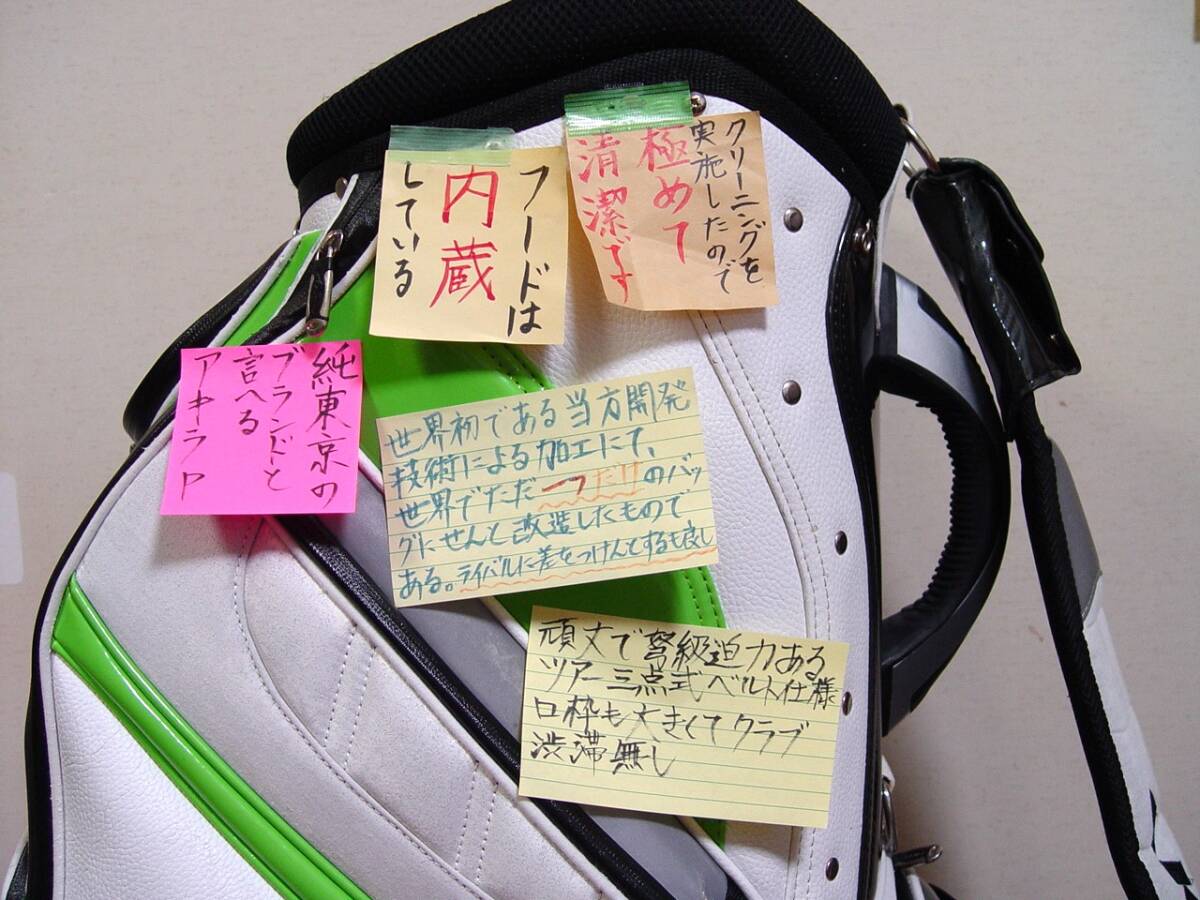 クリーニングを
実施したので
極めて
清潔です
フードは
内蔵
している
純東京の
ブランドと
言へる
アキラP
世界初である当方開発
技術による加工にて、
世界でただ一つだけのバッ
グにせんと改造したもので
ある。ライバルに差をつけんとするも良し
頑丈で弩級迫力ある
ツアー三点式ベルト仕様
口枠も大きくてクラブ
渋滞無し